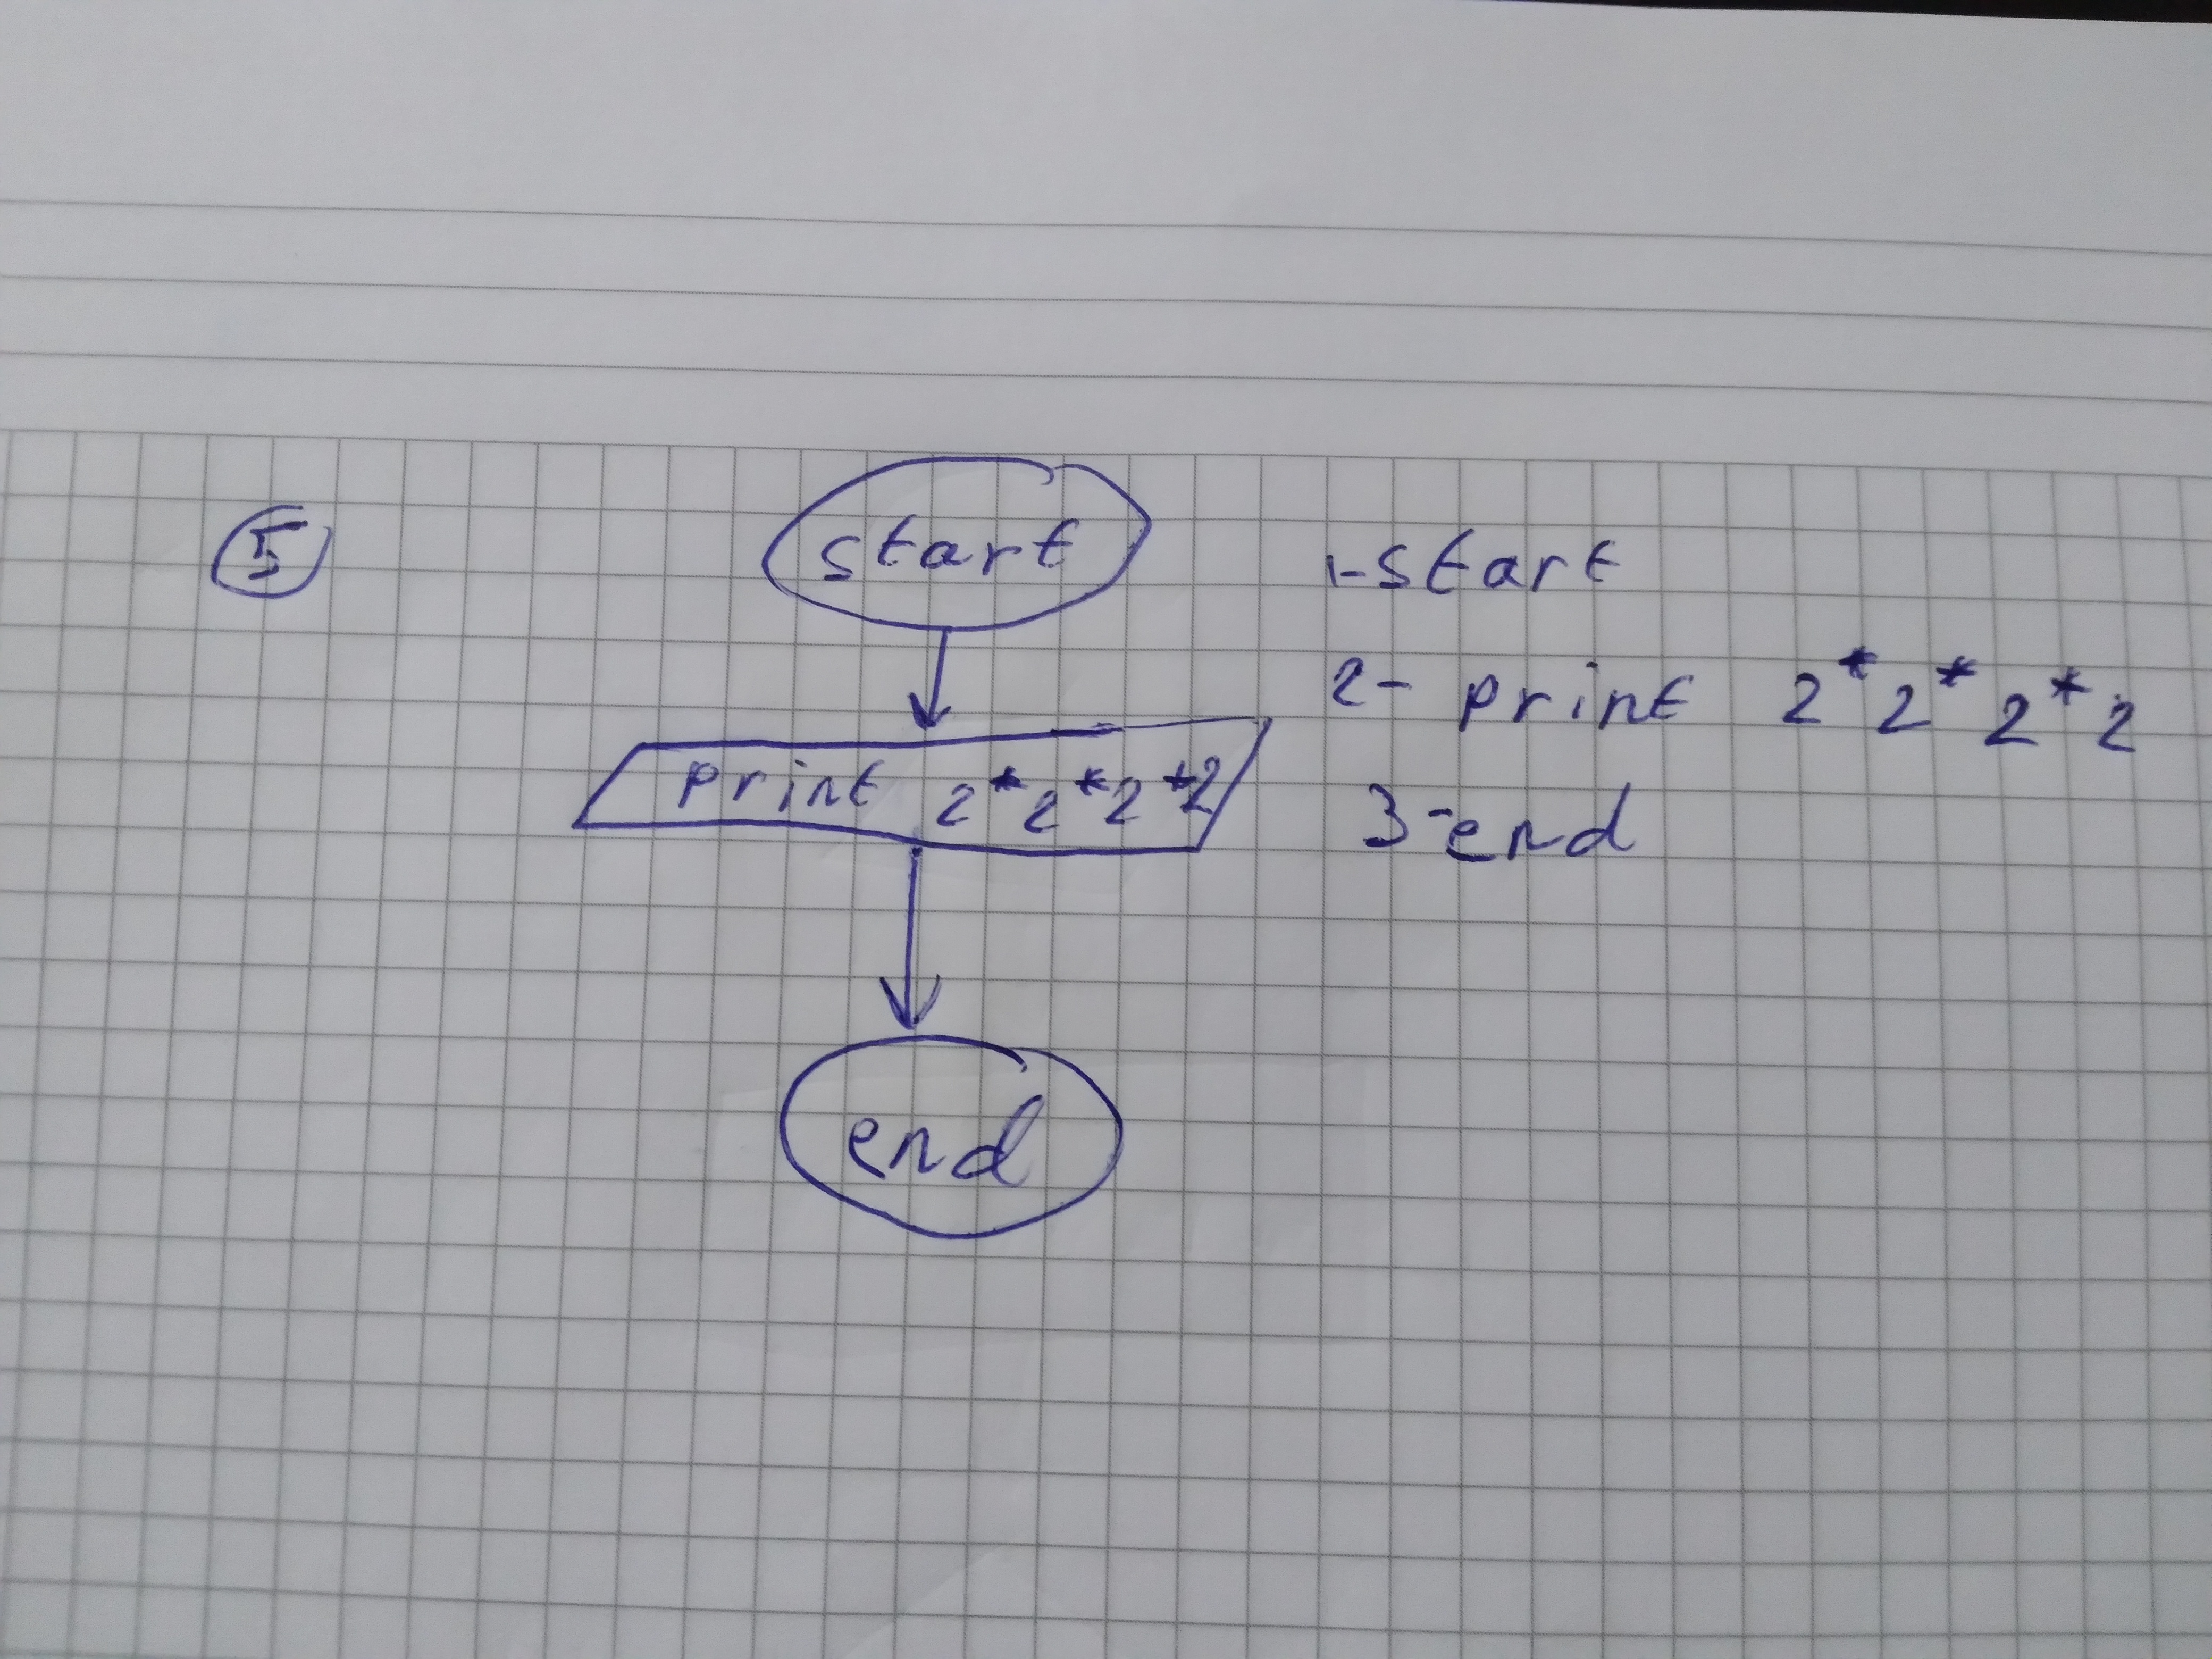 5
start
print 2*2*2*2
end
1-start
2- print 2*2*2*2
3-end